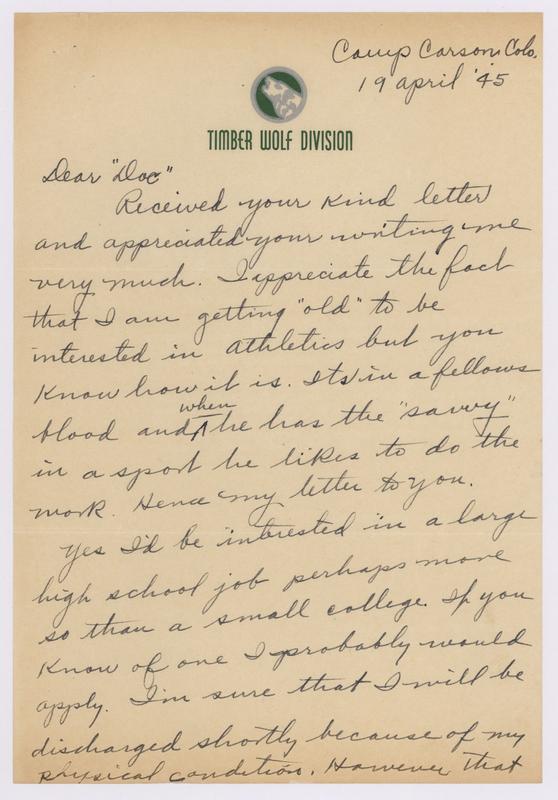 Camp Carson, Colo.
19 April '45
TIMBER WOLF DIVISION
Dear "Doc"
Received your kind letter
and appreciated your writing me
very much. I appreciate the fact
that I am getting "old" to be
interested in athletics but you
know how it is. Its in a fellows
blood and when he has the "savvy"
in a sport he likes to do the
work. Hence my letter to you.
Yes I'd be interested in a large
high school job perhaps more
so than a small college. If you
know of one I probably would
apply. I'm sure that I will be
discharged shortly because of my
physical condition. However that